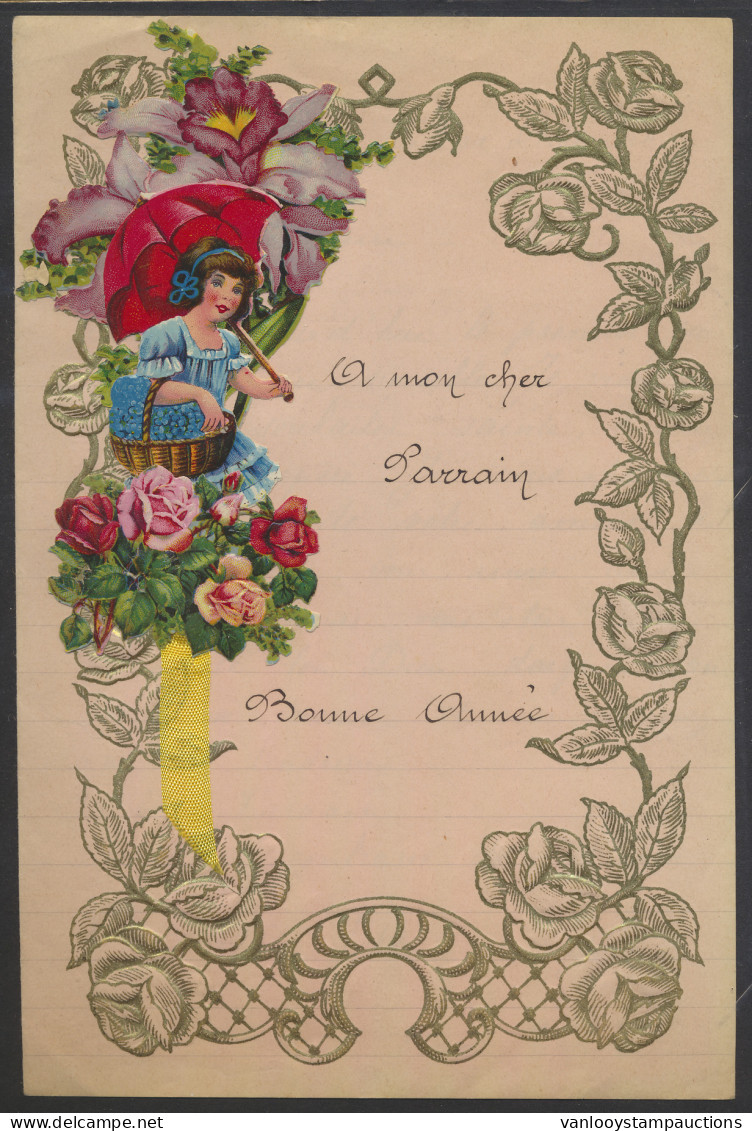 A mon cher
Parrain
Bonne Année
©Delcampe.net
vanlooystampauctions